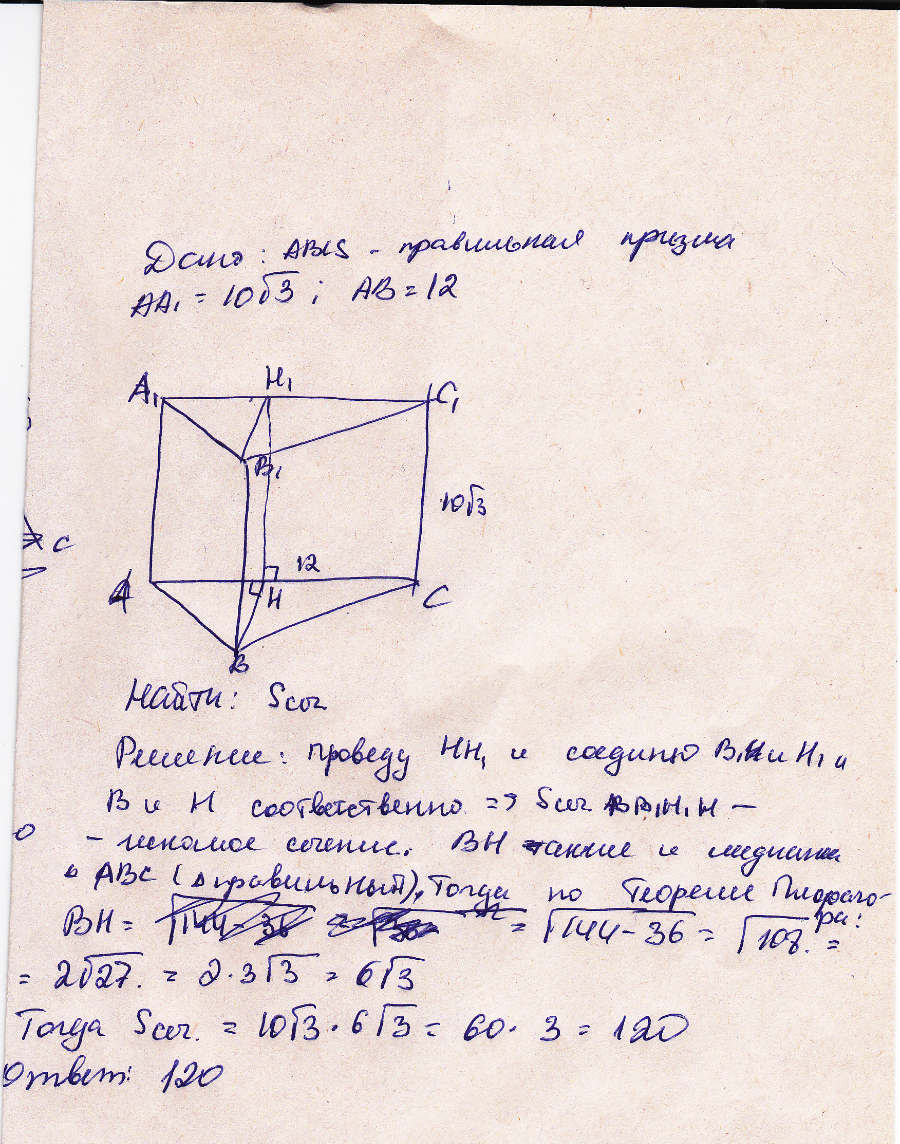 Дано: ABCS - правильная призма
AA₁ = 10√3 ; AB = 12
A₁ H₁ C₁
B₁
10√3
12
A H C
B
C
Найти: Sсег
Решение: проведу HH₁ и соединю B₁ и H₁ и
B и H соответственно => Sсег BB₁H₁H –
– искомое сечение. BH также и медиана
▵ ABC (▵ правильный), Тогда по Теореме Пифаго-
ра:
BH = = √144 - 36 = √108. =
= 2√27. = 2·3√3 = 6√3
Тогда Sсег. = 10√3 · 6√3 = 60 · 3 = 120
Ответ: 120